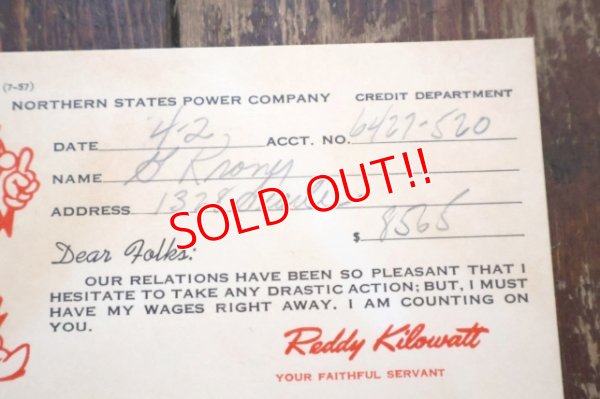 (7-57)
NORTHERN STATES POWER COMPANY CREDIT DEPARTMENT
DATE 4-2 ACCT. NO. 6427-520
NAME G
ADDRESS 1328
SOLD OUT!!
$ 8565
Dear Folks:
OUR RELATIONS HAVE BEEN SO PLEASANT THAT I
HESITATE TO TAKE ANY DRASTIC ACTION; BUT, I MUST
HAVE MY WAGES RIGHT AWAY. I AM COUNTING ON
YOU.
Reddy Kilowatt
YOUR FAITHFUL SERVANT